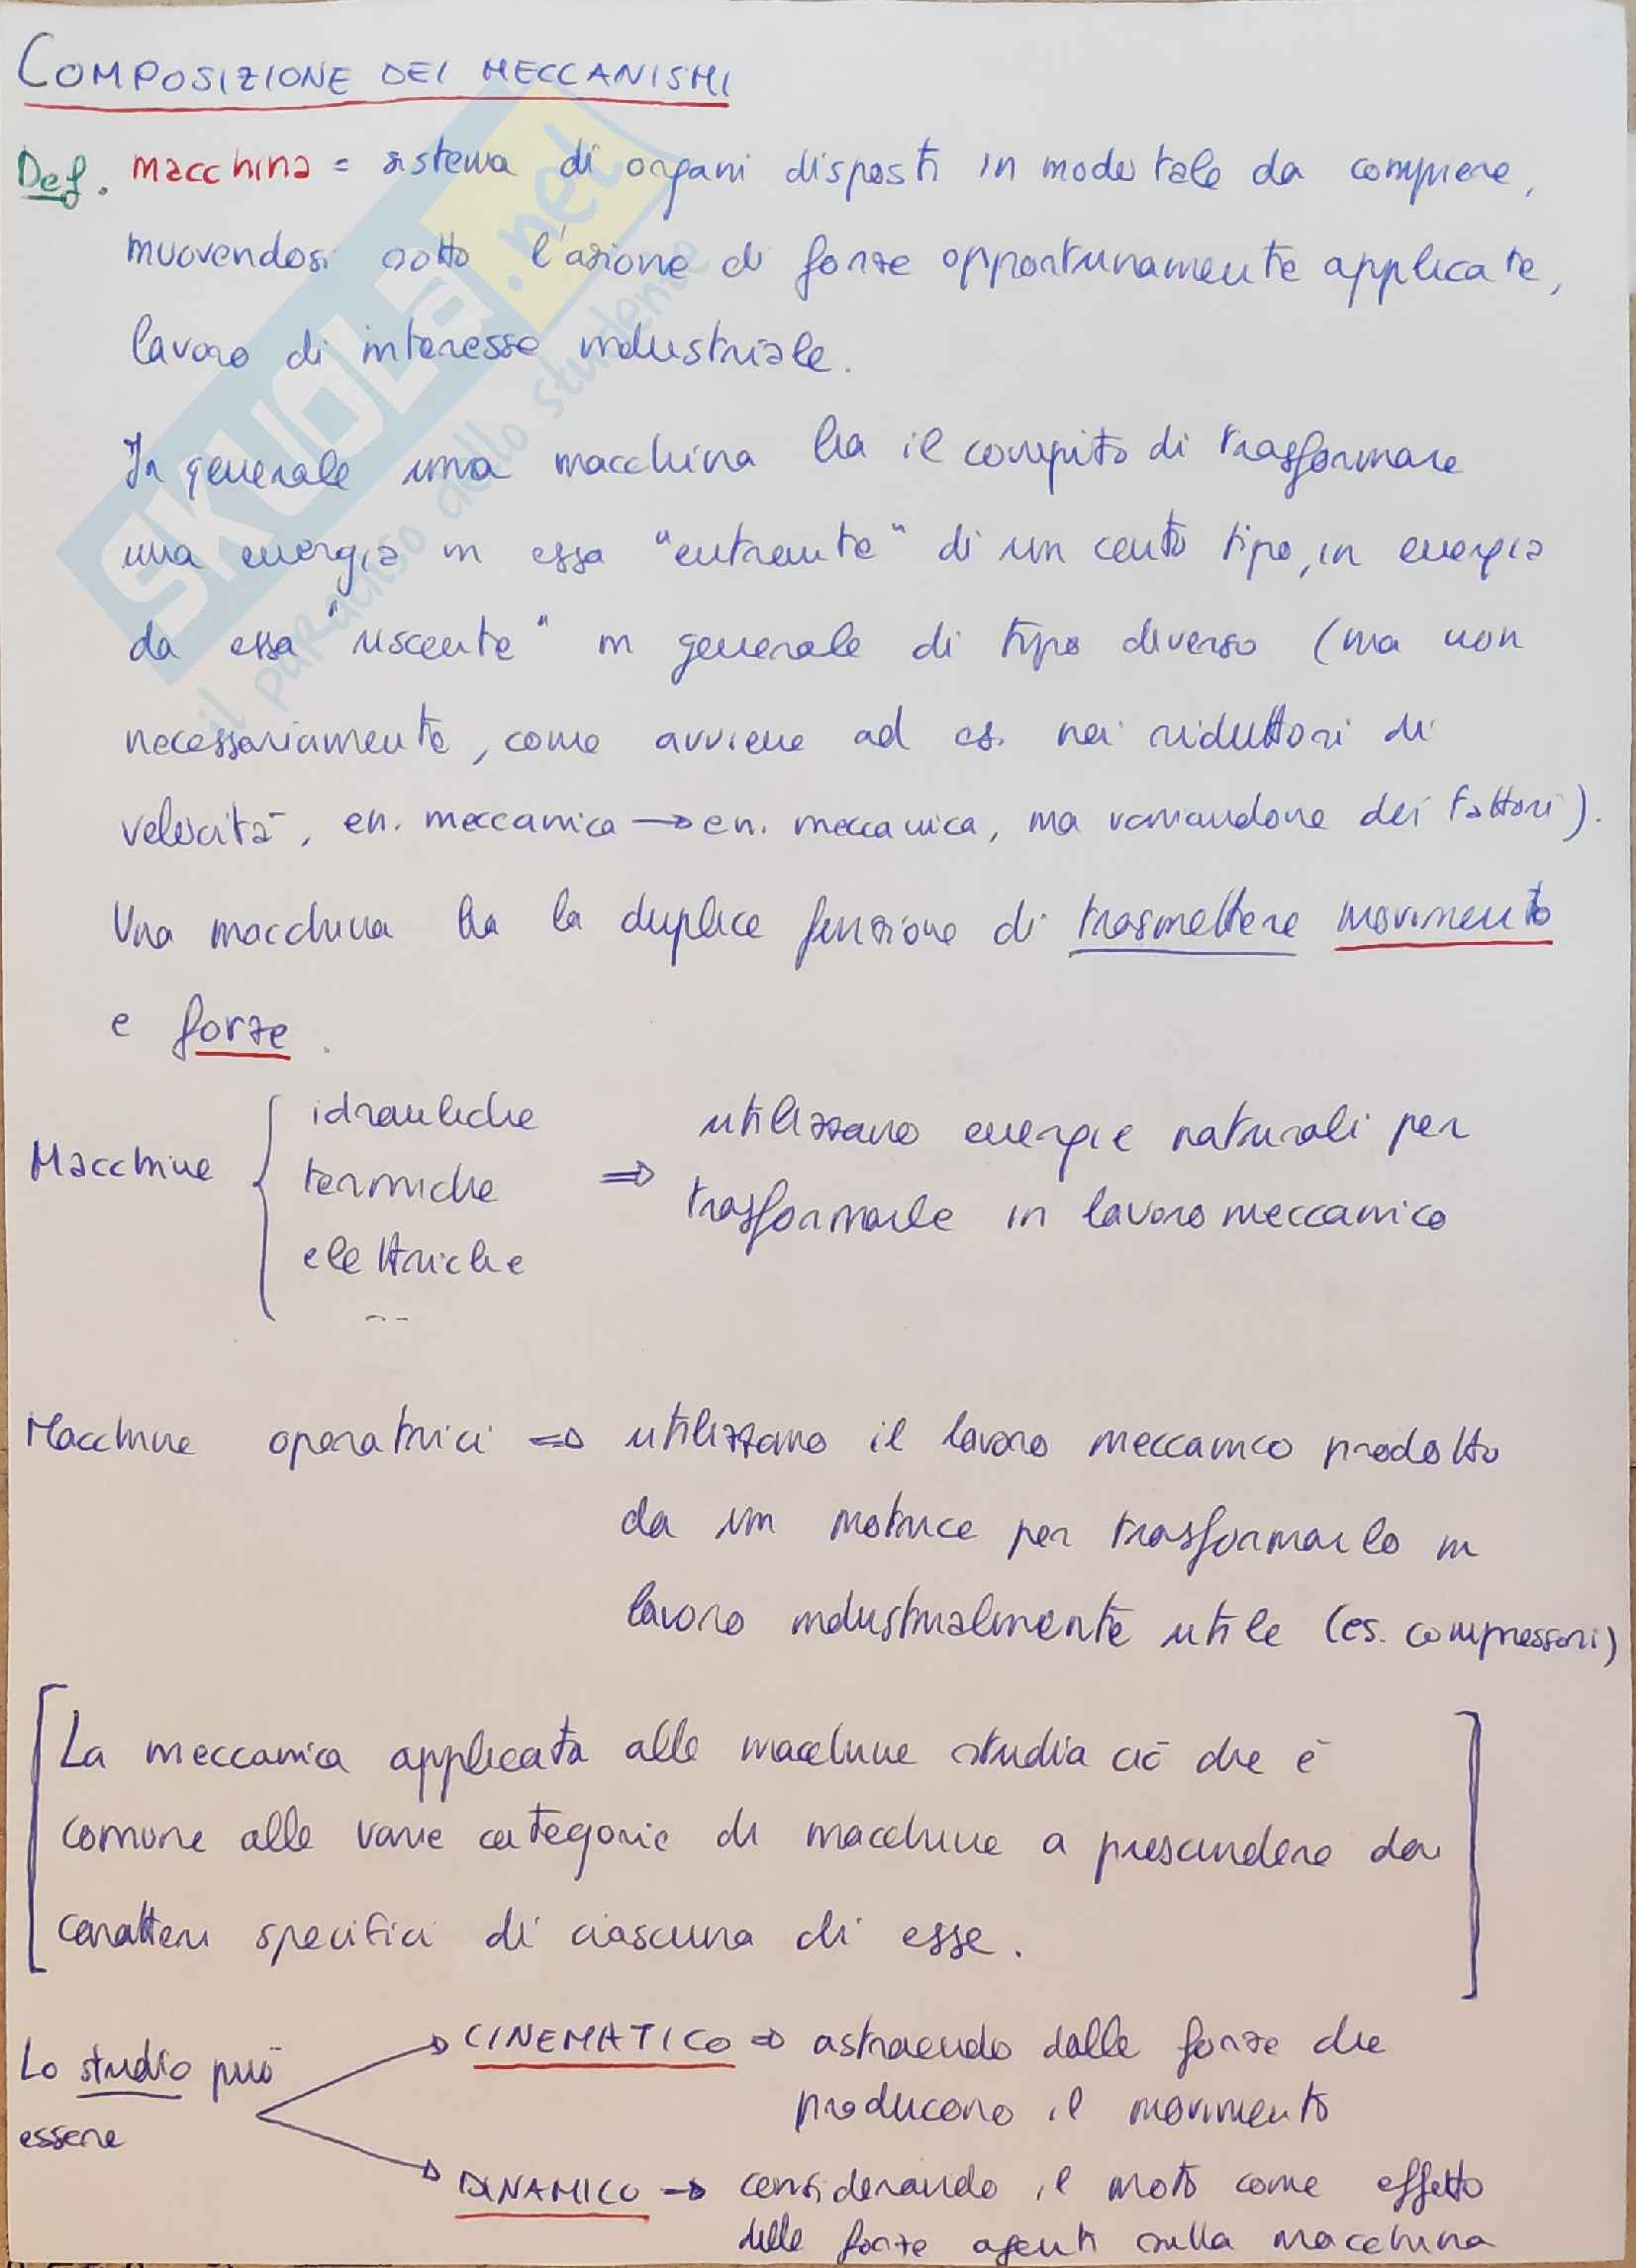 COMPOSIZIONE DEI MECCANISMI
Def. macchina = sistema di organi disposti in modo tale da compiere,
muovendosi sotto l'azione di forze opportunamente applicate,
lavoro di interesse industriale.
In generale una macchina ha il compito di trasformare
una energia in essa "entrante" di un certo tipo, in energia
da essa "uscente" in generale di tipo diverso (ma non
necessariamente, come avviene ad es. nei riduttori di
velocità, en. meccanica → en. meccanica, ma variandone dei fattori).
Una macchina ha la duplice funzione di trasmettere movimento
e forze.
Macchine { idrauliche
termiche
elettriche
...
⇒ utilizzano energie naturali per
trasformarle in lavoro meccanico
Macchine operatrici ⇒ utilizzano il lavoro meccanico prodotto
da un motrice per trasformarlo in
lavoro industrialmente utile (es. compressori)
[La meccanica applicata alle macchine studia ciò che è
comune alle varie categorie di macchine a prescindere dai
caratteri specifici di ciascuna di esse.]
Lo studio può
essere
CINEMATICO ⇒ astraendo dalle forze che
producono il movimento
DINAMICO → considerando il moto come effetto
delle forze agenti sulla macchina
SKUOLA.net
il paradiso dello studente